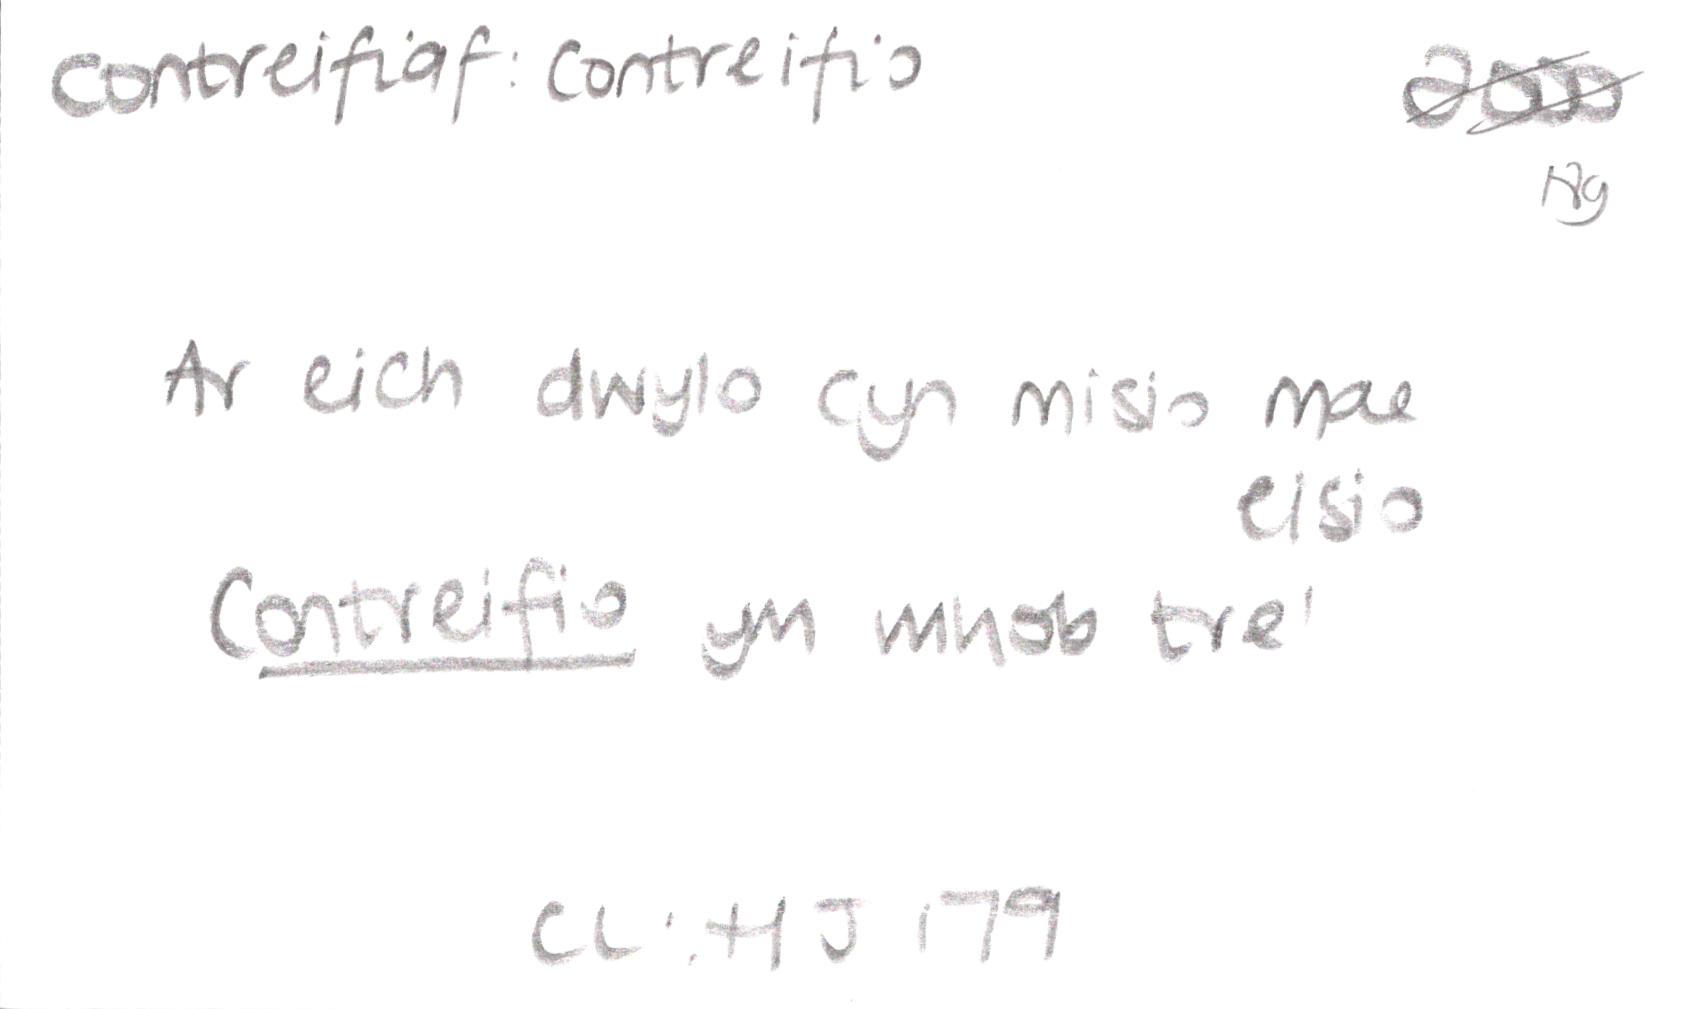 Contreifiaf: Contreifio
Ar eich dwylo cyn misio mae
eisio
Contreifio ym mhob tre'
CL: HJ 179